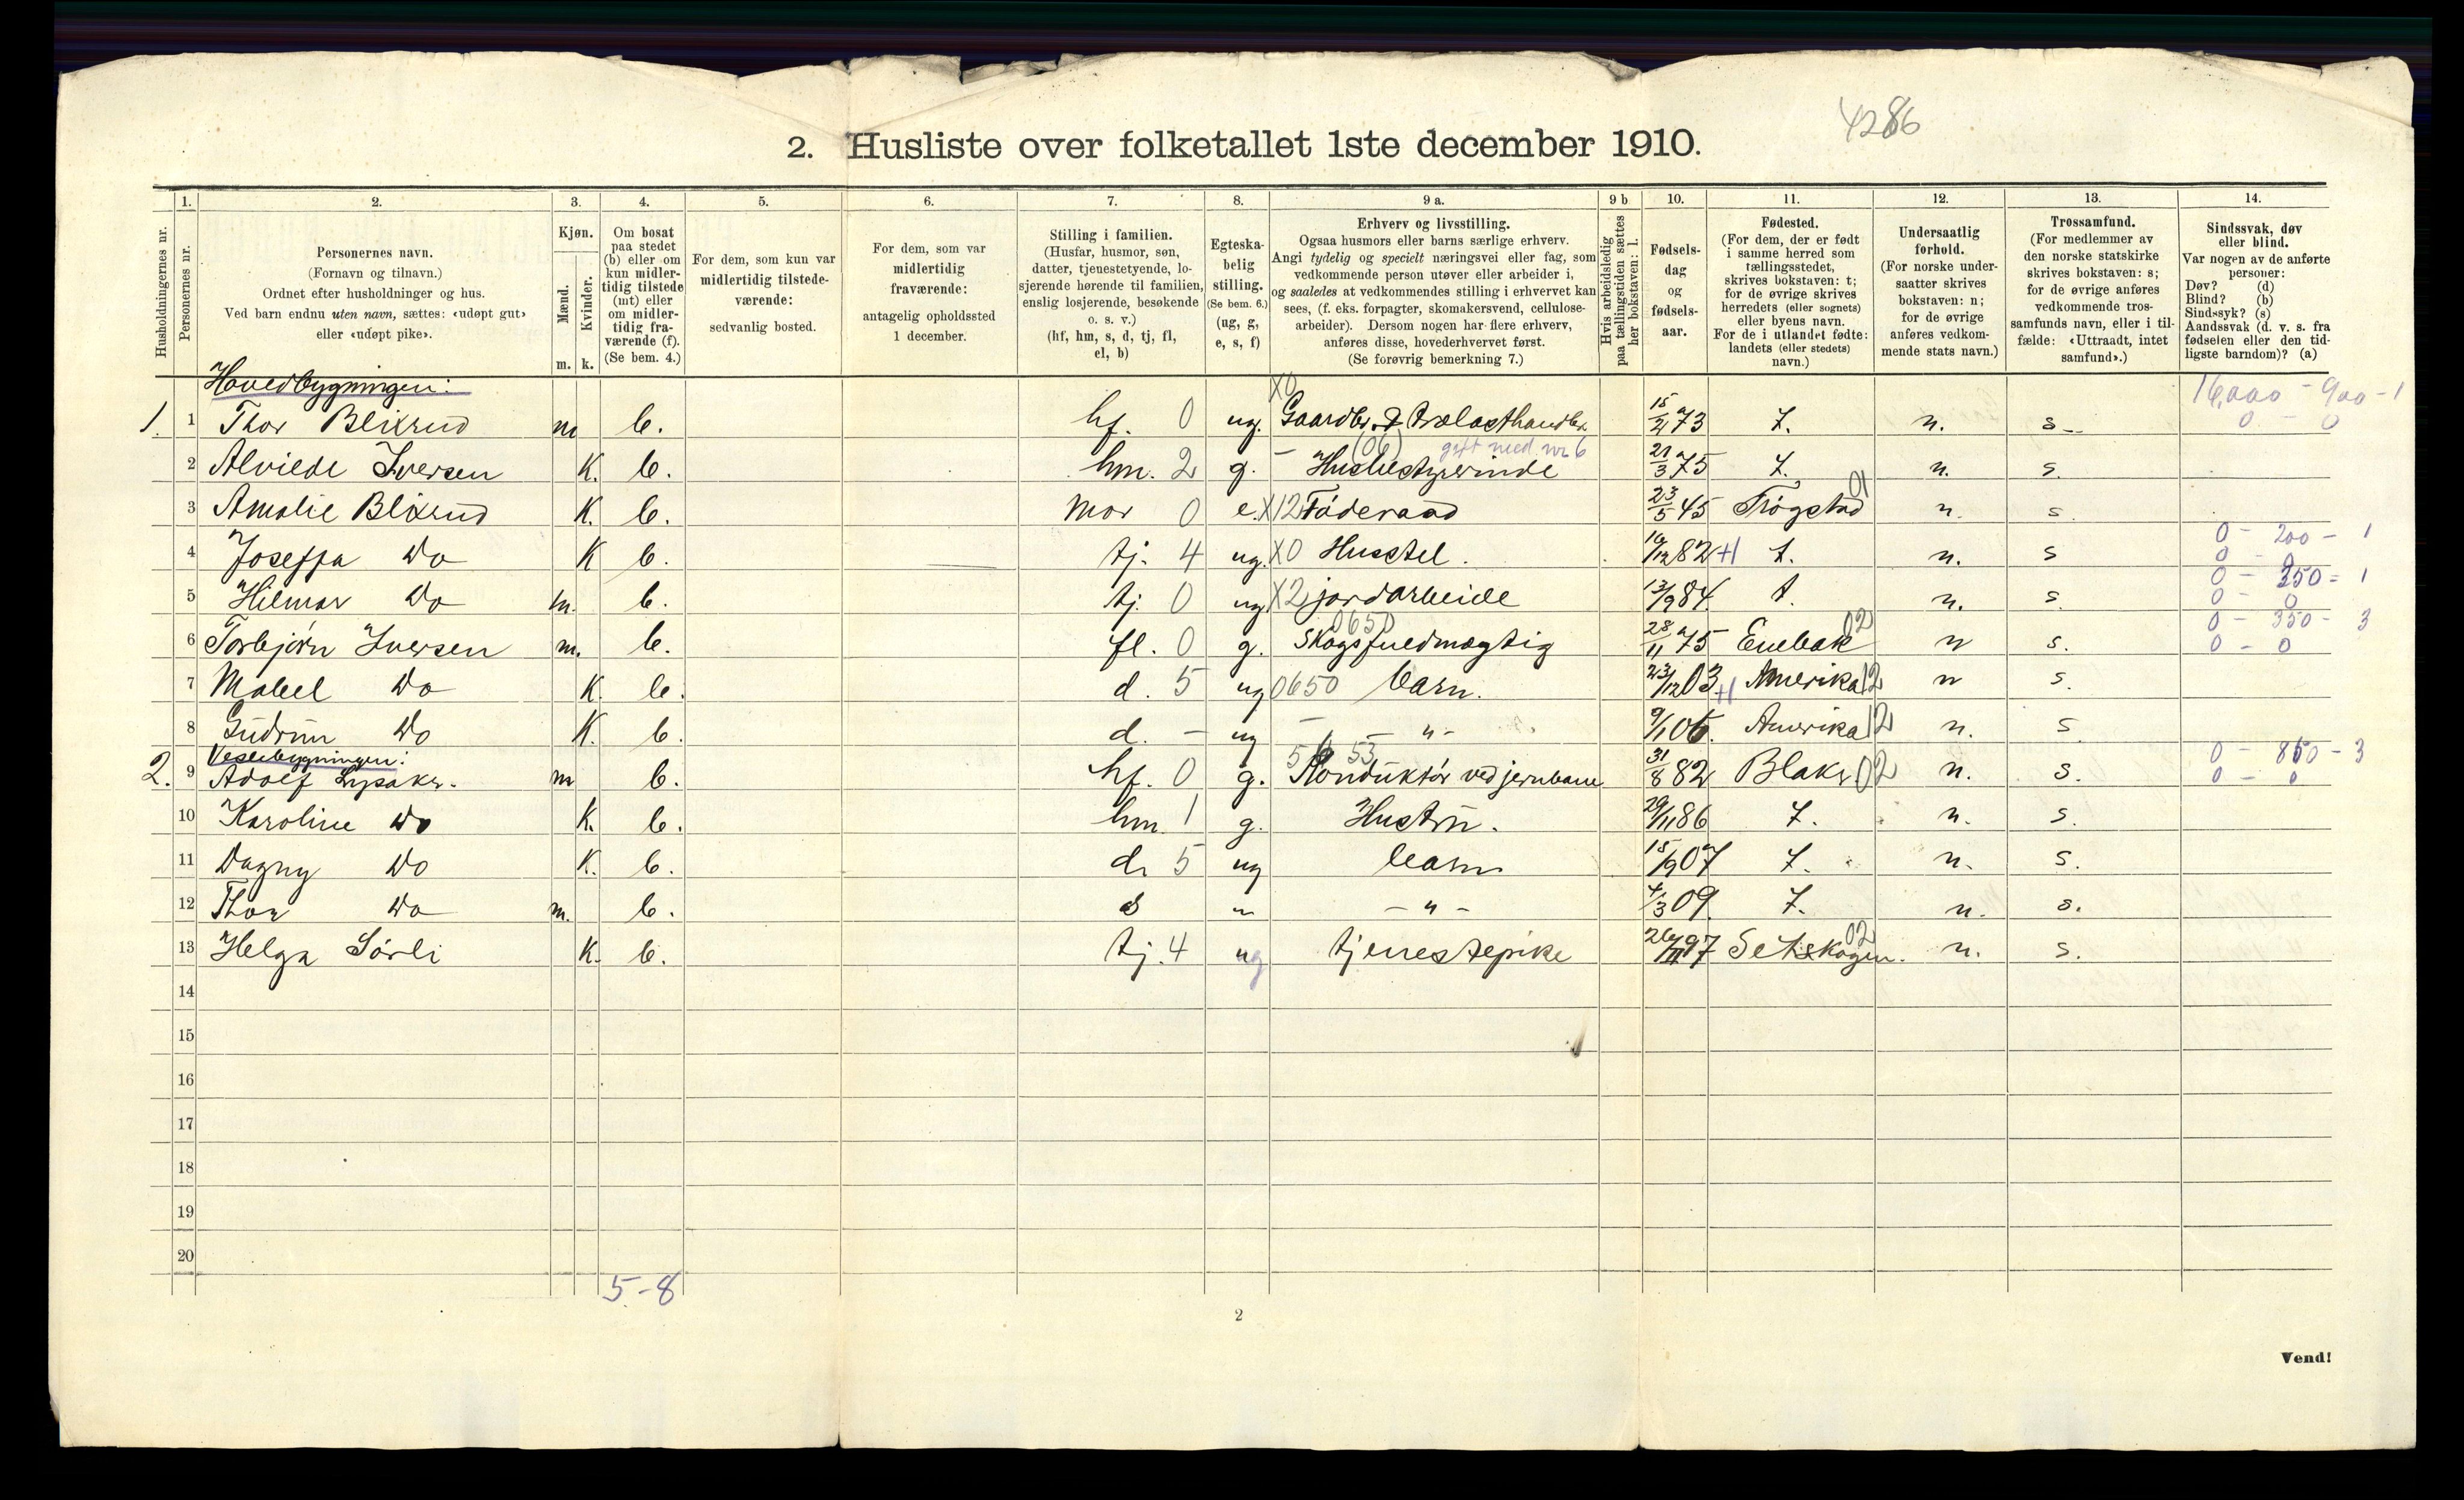 4286
2. Husliste over folketallet 1ste december 1910.
Husholdningernes nr.
1.
Personernes nr.
2.
Personernes navn.
(Fornavn og tilnavn.)
Ordnet efter husholdninger og hus.
Ved barn endnu uten navn, sættes: «udøpt gut»
eller «udøpt pike».
3.
Kjøn.
Mænd.
Kvinder.
m. k.
4.
Om bosat
paa stedet
(b) eller om
kun midler-
tidig tilstede
(mt) eller
om midler-
tidig fra-
værende (f).
(Se bem. 4.)
5.
For dem, som kun var
midlertidig tilstede-
værende:
sedvanlig bosted.
6.
For dem, som var
midlertidig
fraværende:
antagelig opholdssted
1 december.
7.
Stilling i familien.
(Husfar, husmor, søn,
datter, tjenestetyende, lo-
sjerende hørende til familien,
enslig losjerende, besøkende
o. s. v.)
(hf, hm, s, d, tj, fl,
el, b)
8.
Egteska-
belig
stilling.
(Se bem. 6.)
(ug, g,
e, s, f)
9 a.
Erhverv og livsstilling.
Ogsaa husmors eller barns særlige erhverv.
Angi tydelig og specielt næringsvei eller fag, som
vedkommende person utøver eller arbeider i,
og saaledes at vedkommendes stilling i erhvervet kan
sees, (f. eks. forpagter, skomakersvend, cellulose-
arbeider). Dersom nogen har flere erhverv,
anføres disse, hovederhvervet først.
(Se forøvrig bemerkning 7.)
9 b
Hvis arbeidsledig
paa tællingstiden sættes
her bokstaven: l.
10.
Fødsels-
dag
og
fødsels-
aar.
11.
Fødested.
(For dem, der er født
i samme herred som
tællingsstedet,
skrives bokstaven: t;
for de øvrige skrives
herredets (eller sognets)
eller byens navn.
For de i utlandet fødte:
landets (eller stedets)
navn.)
12.
Undersaatlig
forhold.
(For norske under-
saatter skrives
bokstaven: n;
for de øvrige
anføres vedkom-
mende stats navn.)
13.
Trossamfund.
(For medlemmer av
den norske statskirke
skrives bokstaven: s;
for de øvrige anføres
vedkommende tros-
samfunds navn, eller i til-
fælde: «Uttraadt, intet
samfund».)
14.
Sindssvak, døv
eller blind.
Var nogen av de anførte
personer:
Døv? (d)
Blind? (b)
Sindssyk? (s)
Aandssvak (d. v. s. fra
fødselen eller den tid-
ligste barndom)? (a)
Hovedbygningen:
X0 16,000 - 900 - 1
1. 1 Thor Blixrud m b. hf. 0 ug. Gaardbr. & Trælasthandler 15/2 73 t. n. s 0 - 0
(06) gift med nr 6
2 Alvilde Iversen K. b. hm. 2 g. - Husbestyrerinde 21/3 75 t. n. s.
3 Amalie Blixrud K. b. Mor 0 e. X12 Føderaad 23/5 45 Trøgstad 01 n. s.
0 - 200 - 1
4 Joseffa Do K b. tj. 4 ug. X0 Husstel. 10/12 82 +1 t. n. s 0 - 0
0 - 350 - 1
5 Hilmar Do m. b. tj. 0 ug X2 jordarbeide 13/9 84 t. n. s. 0 - 0
0650 0 - 350 - 3
6 Torbjørn Iversen m. b. fl. 0 g. Skogsfuldmægtig 28/11 75 Enebak 02 n s. 0 - 0
7 Mabel Do K. b. d. 5 ug 0650 barn. 23/12 03 +1 Amerika 12 n s.
8 Gudrun Do K. b. d. - ug - " - 9/1 05. Amerika 12 n. s
Veslebygningen: 53 0 - 850 - 3
2. 9 Adolf Lysaker. m b. hf. 0 g. Konduktør ved jernbane 31/8 82 Blaker 02 n. s. 0 - 0
10 Karoline Do K. b. hm. 1 g. Hustru. 29/11 86 t. n. s.
11 Dagny Do K. b. d. 5 ug barn 15/9 07 t. n. s.
12 Thor Do m. b. s " - " - 4/3 09. t. n. s.
13 Helga Sørli K. b. tj. 4 ug tjenestepike 26/11 97 Setskogen. 02 n. s.
14
15
16
17
18
19
20
5-8
2
Vend!